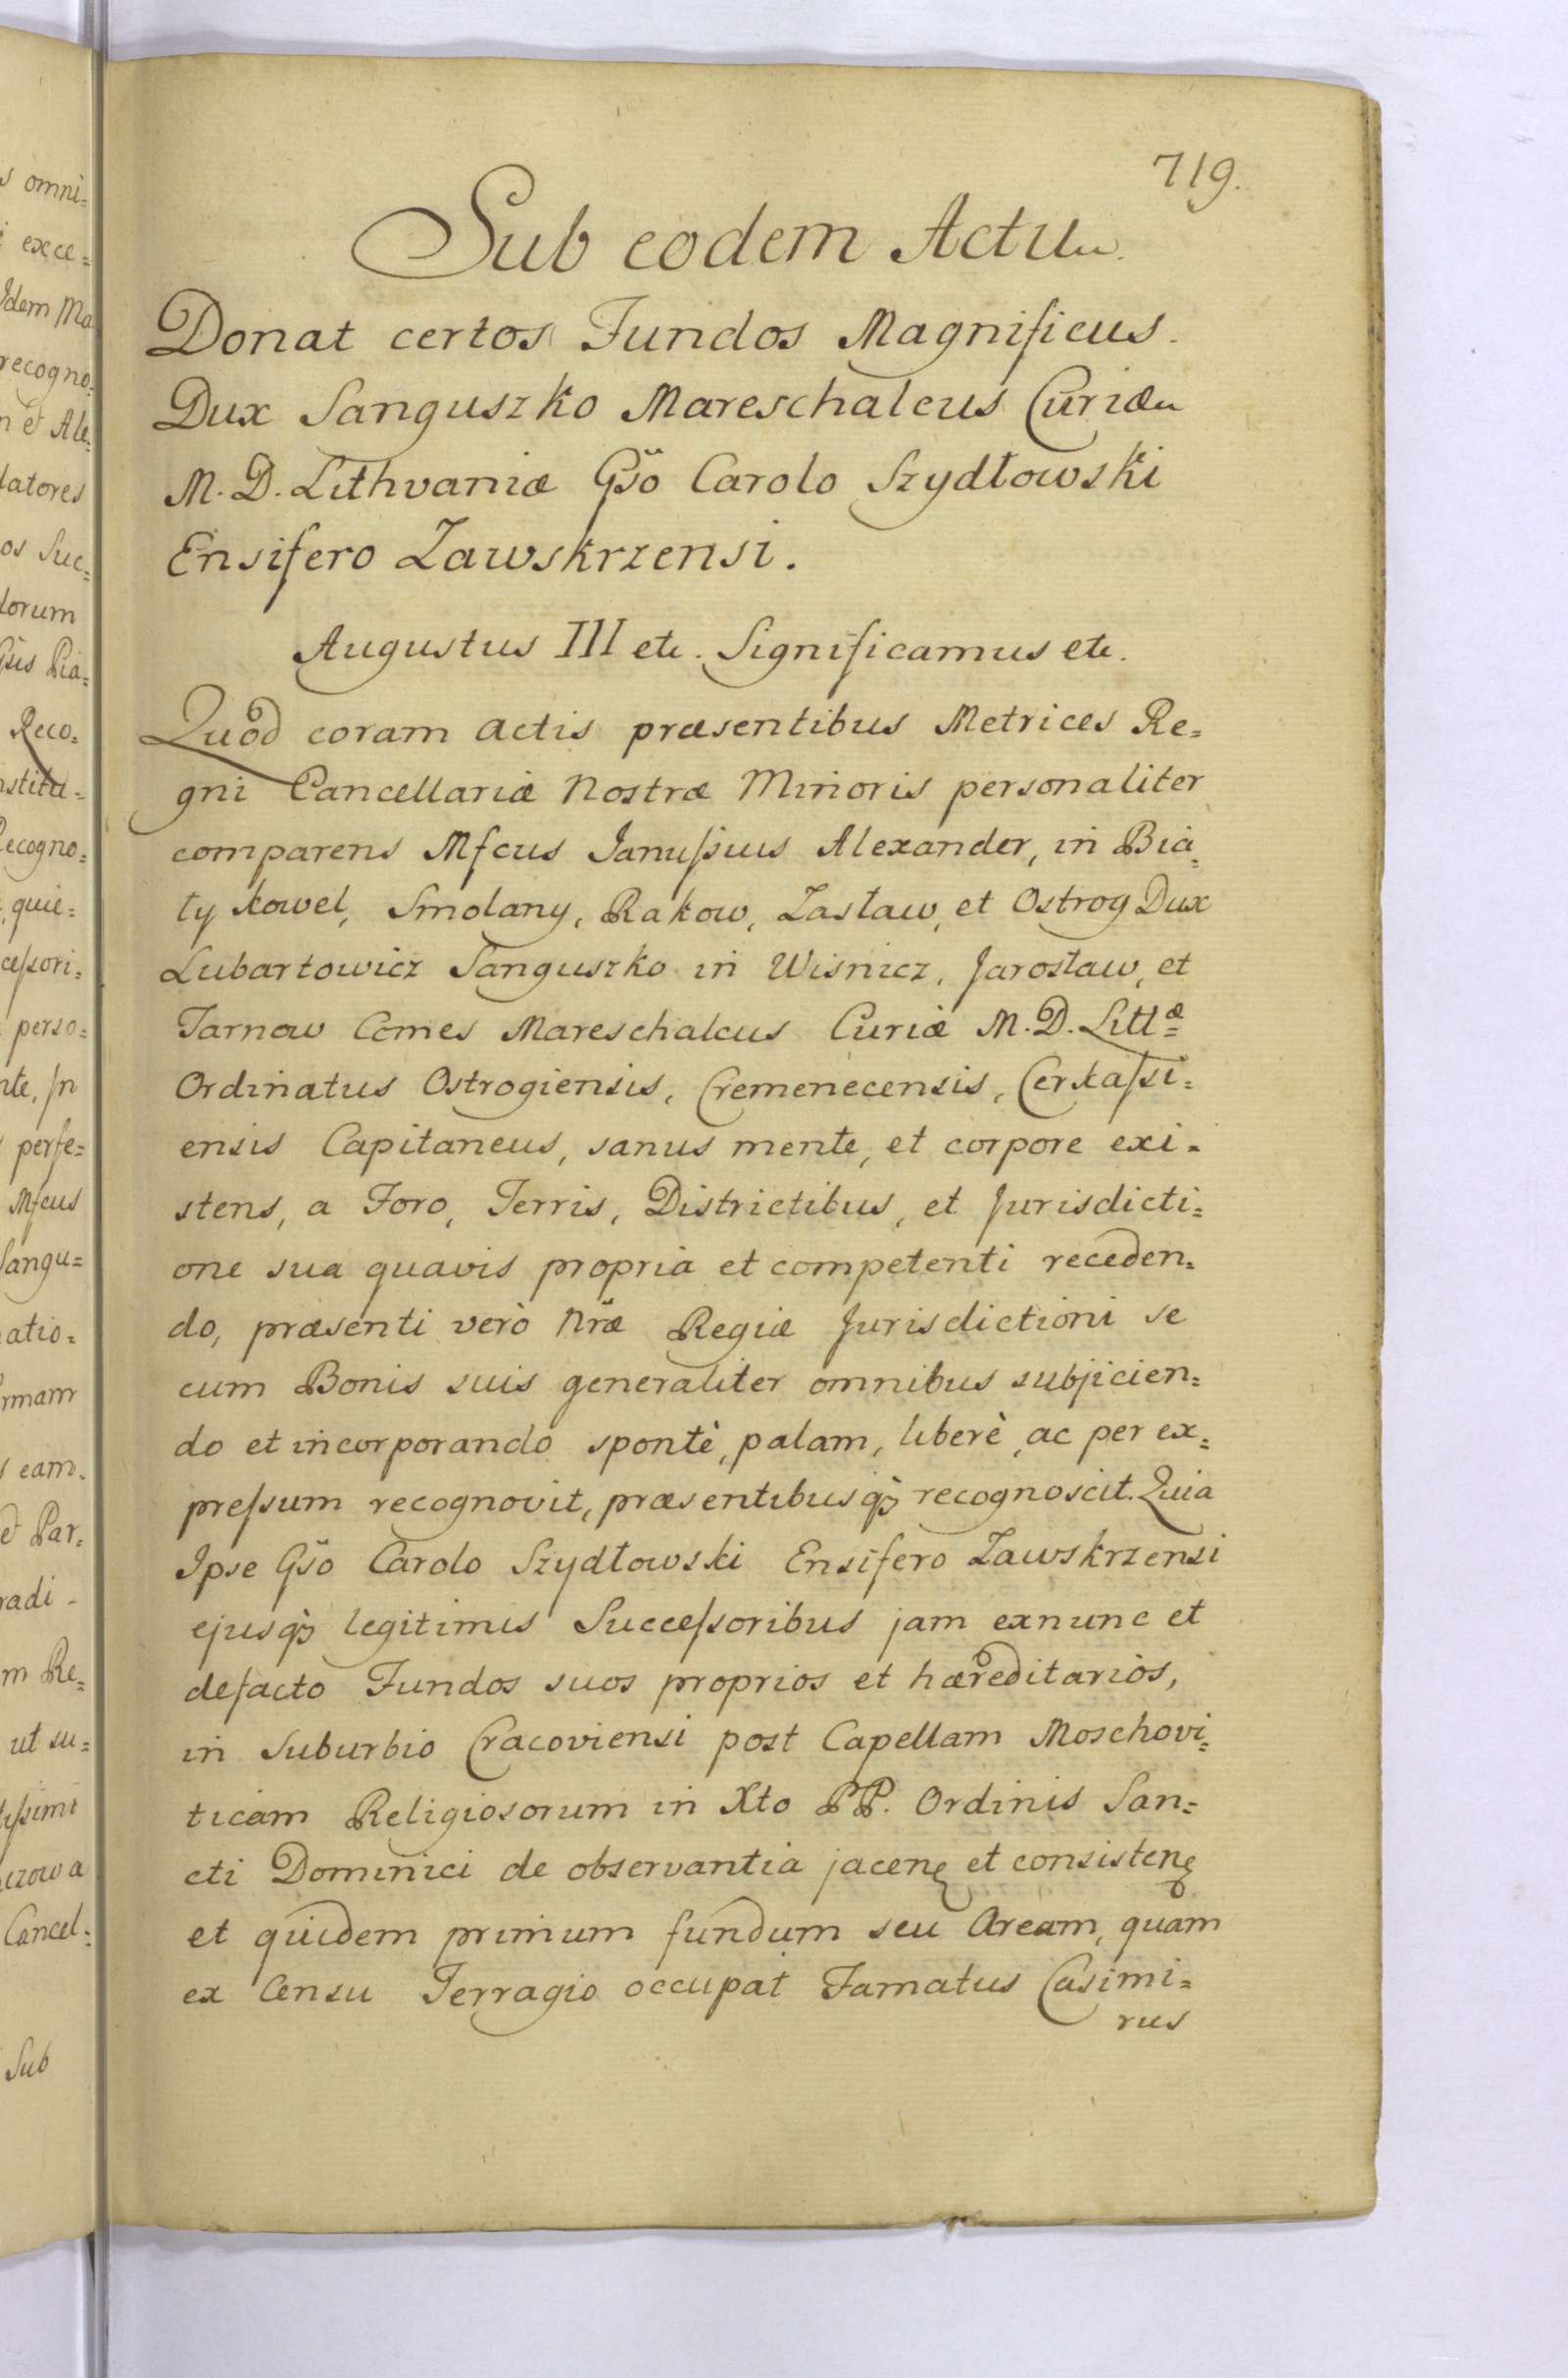 719.
Sub eodem Actu
Donat certos Fundos Magnificus
Dux Sanguszko Mareschalcus Curiæ
M. D. Lithvaniæ Gso Carolo Szydłowski
Ensifero Zawskrzensi.
Augustus III etc. Significamus etc.
Quod coram actis præsentibus Metrices Re=
gni Cancellariæ Nostræ Minoris personaliter
comparens Mfcus Janußius Alexander, in Bia=
ły Kowel, Smolany, Rakow, Zasław, et Ostrog Dux
Lubartowicz Sanguszko in Wisnicz, Jarosław, et
Tarnow Comes Mareschalcus Curiæ M. D. Littæ
Ordinatus Ostrogiensis, Cremenecensis, Cerkaßi=
ensis Capitaneus, sanus mente, et corpore exi=
stens, a Foro, Terris, Districtibus, et Jurisdicti=
one sua quavis propria et competenti receden=
do, præsenti verò Nræ Regiæ Jurisdictioni se
cum Bonis suis generaliter omnibus subjicien=
do et incorporando spontè, palam, liberè, ac per ex=
preßum recognovit, præsentibusq3 recognoscit. Quia
Ipse Gso Carolo Szydłowski Ensifero Zawskrzensi
ejusq3 legitimis Succeßoribus jam exnunc et
defacto Fundos suos proprios et hæreditarios,
in Suburbio Cracoviensi post Capellam Moschovi=
ticam Religiosorum in Xto PP. Ordinis San=
cti Dominici de observantia jacenę et consistenę
et quidem primum fundum seu Aream, quam
ex Censu Terragio occupat Famatus Casimi=
rus
s omni=
exce=
Idem Ma
recogno=
n et Ale=
latores
os Suc=
lorum
Gsis Pia=
Reco=
nstitu=
Recogno=
quie=
ceßori=
perso=
nte, In
perfe=
Mfcus
Sangu=
atio=
rmam
s eam=
Par=
radi=
m Re=
ut su=
tißimi
czowa
Cancel=
Sub